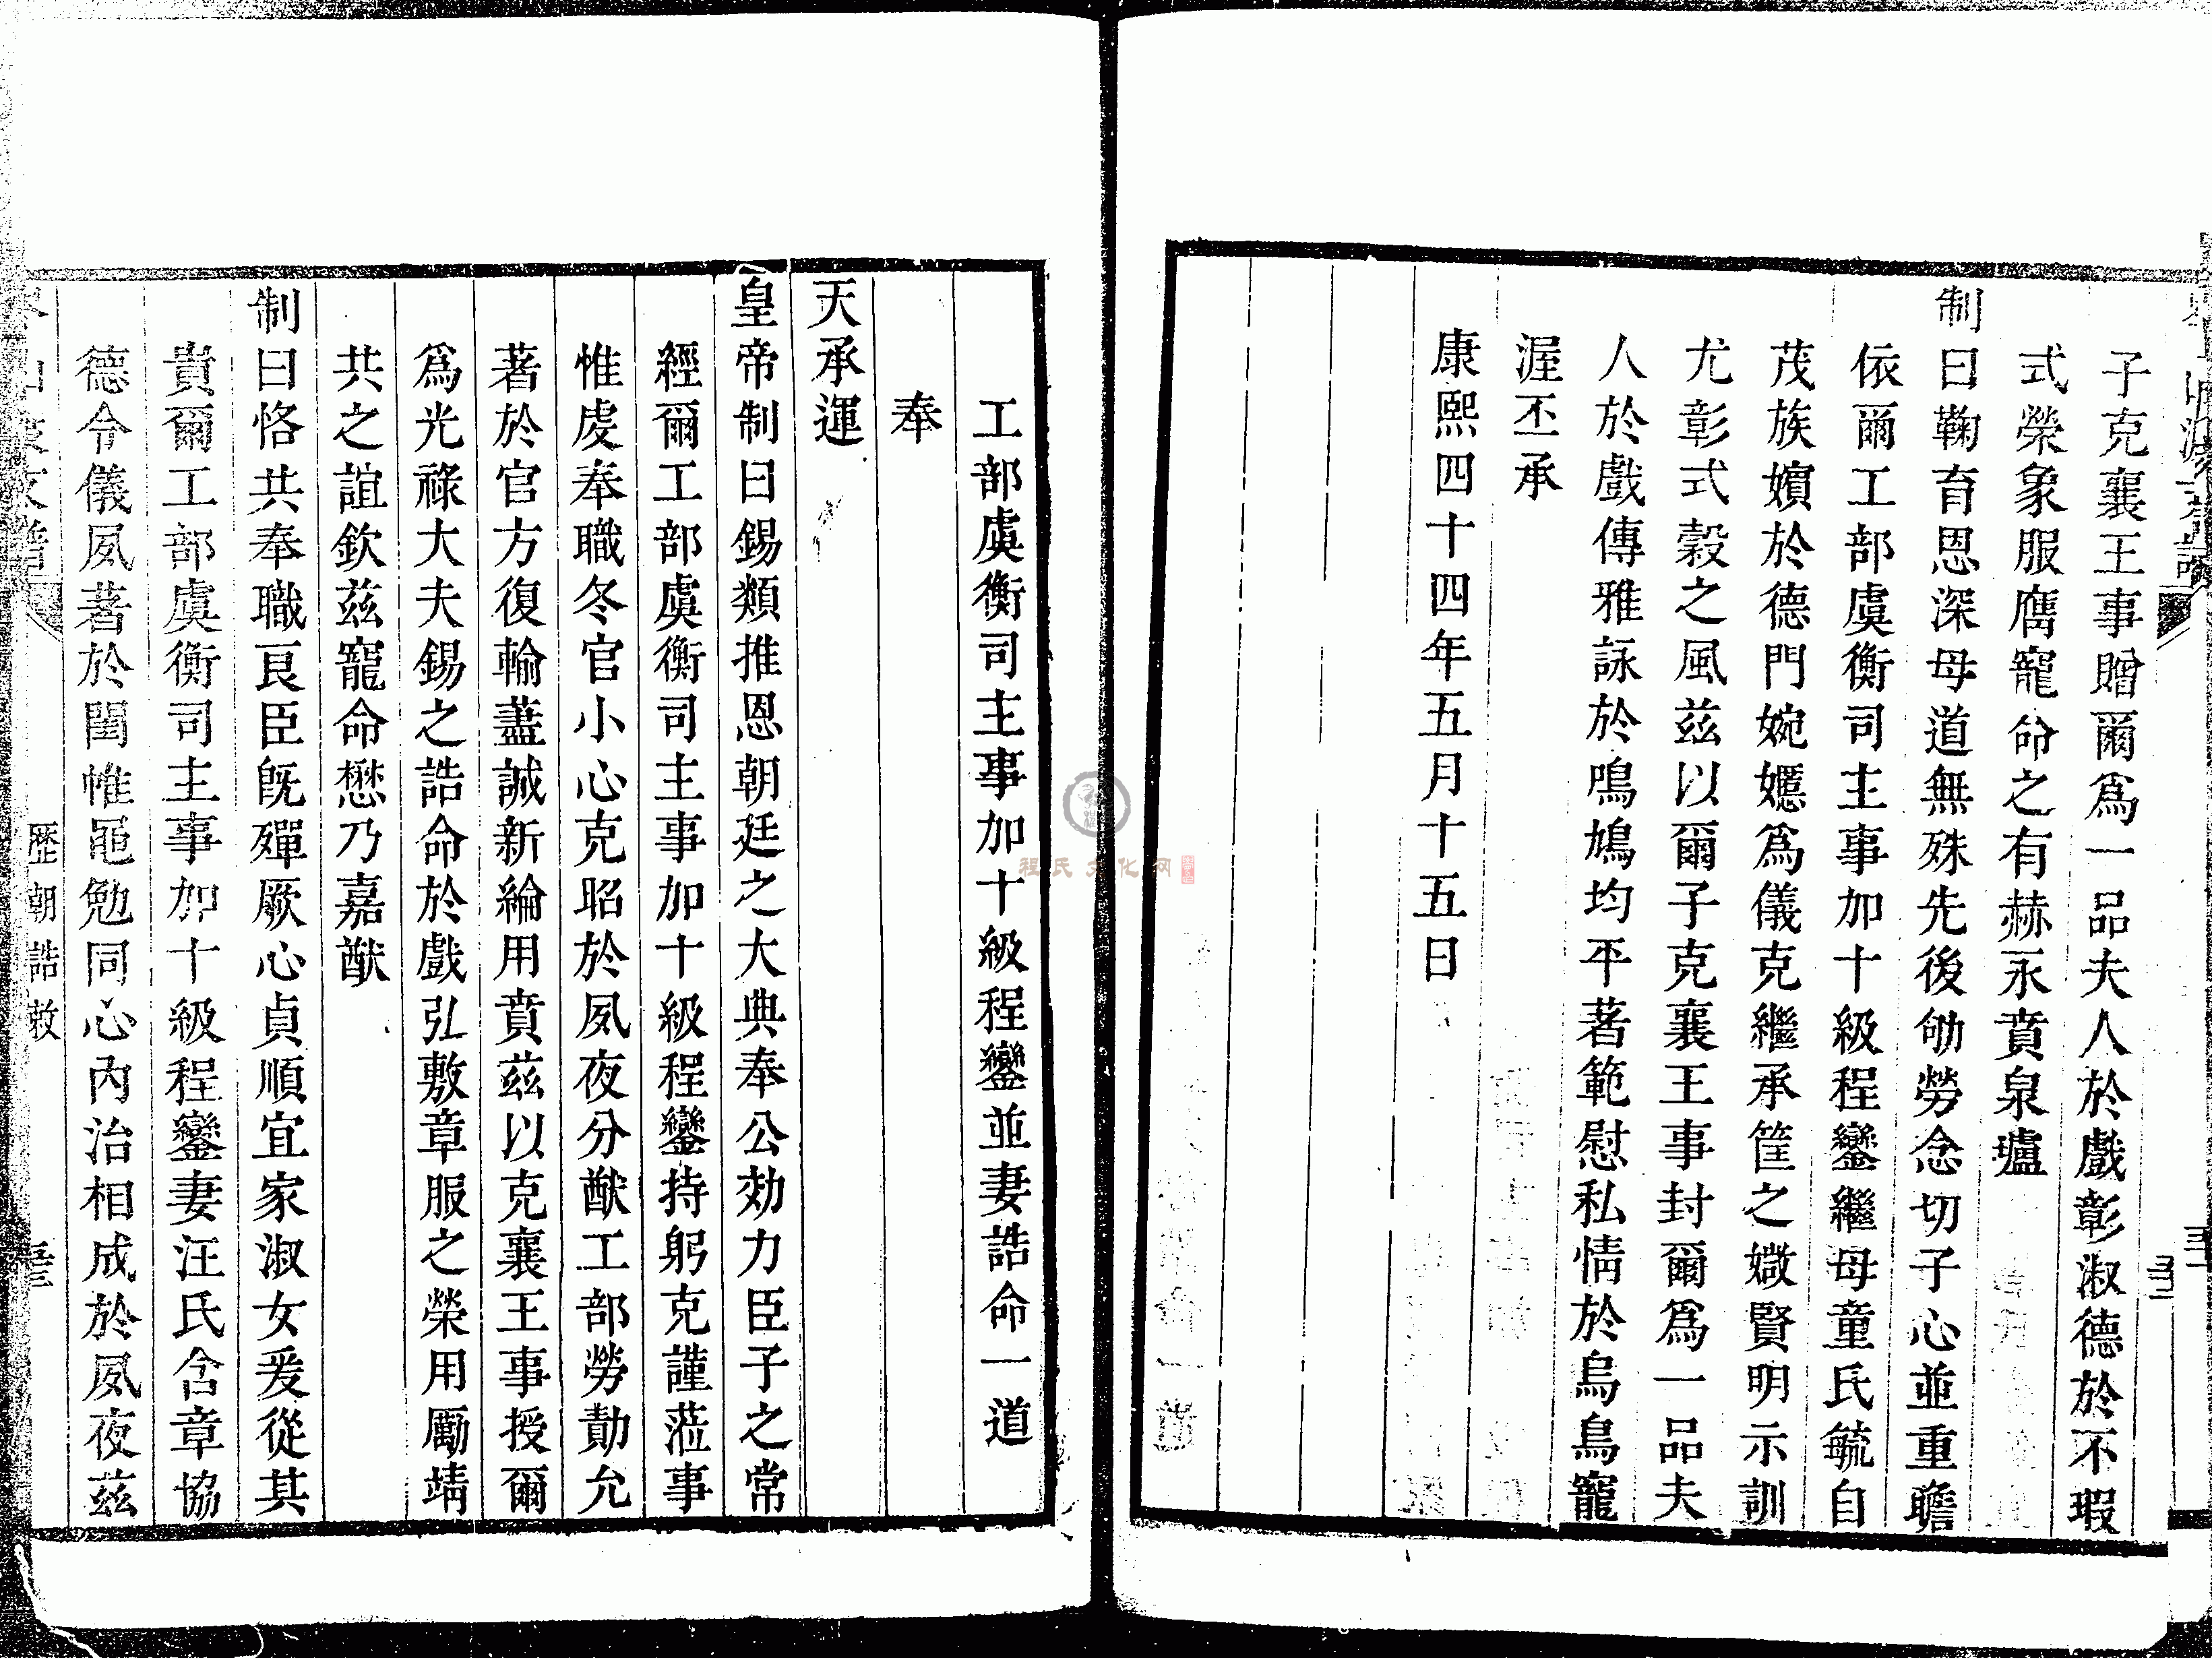 子克襄王事贈爾爲一品夫人於戲彰淑德於不瑕
式榮象服膺寵命之有赫永賁泉壚
制曰鞠育恩深母道無殊先後劬勞念切子心並重瞻
依爾工部虞衡司主事加十級程鑾繼母童氏毓自
茂族嬪於德門婉嫕爲儀克繼承筐之媺賢明示訓
尤彰式榖之風茲以爾子克襄王事封爾爲一品夫
人於戲傳雅詠於鳴鳩均平著範慰私情於烏鳥寵
渥丕承
康熙四十四年五月十五日
工部虞衡司主事加十級程鑾並妻誥命一道
奉
天承運
皇帝制曰錫類推恩朝廷之大典奉公効力臣子之常
經爾工部虞衡司主事加十級程鑾持躬克謹蒞事
惟虔奉職冬官小心克昭於夙夜分猷工部勞勩允
著於官方復輸藎誠新綸用賁茲以克襄王事授爾
爲光祿大夫錫之誥命於戲弘敷章服之榮用勵靖
共之誼欽茲寵命懋乃嘉猷
制曰恪共奉職良臣旣殫厥心貞順宜家淑女爰從其
貴爾工部虞衡司主事加十級程鑾妻汪氏含章協
德令儀夙著於閨帷黽勉同心內治相成於夙夜茲
歷朝誥敕
程氏文化网